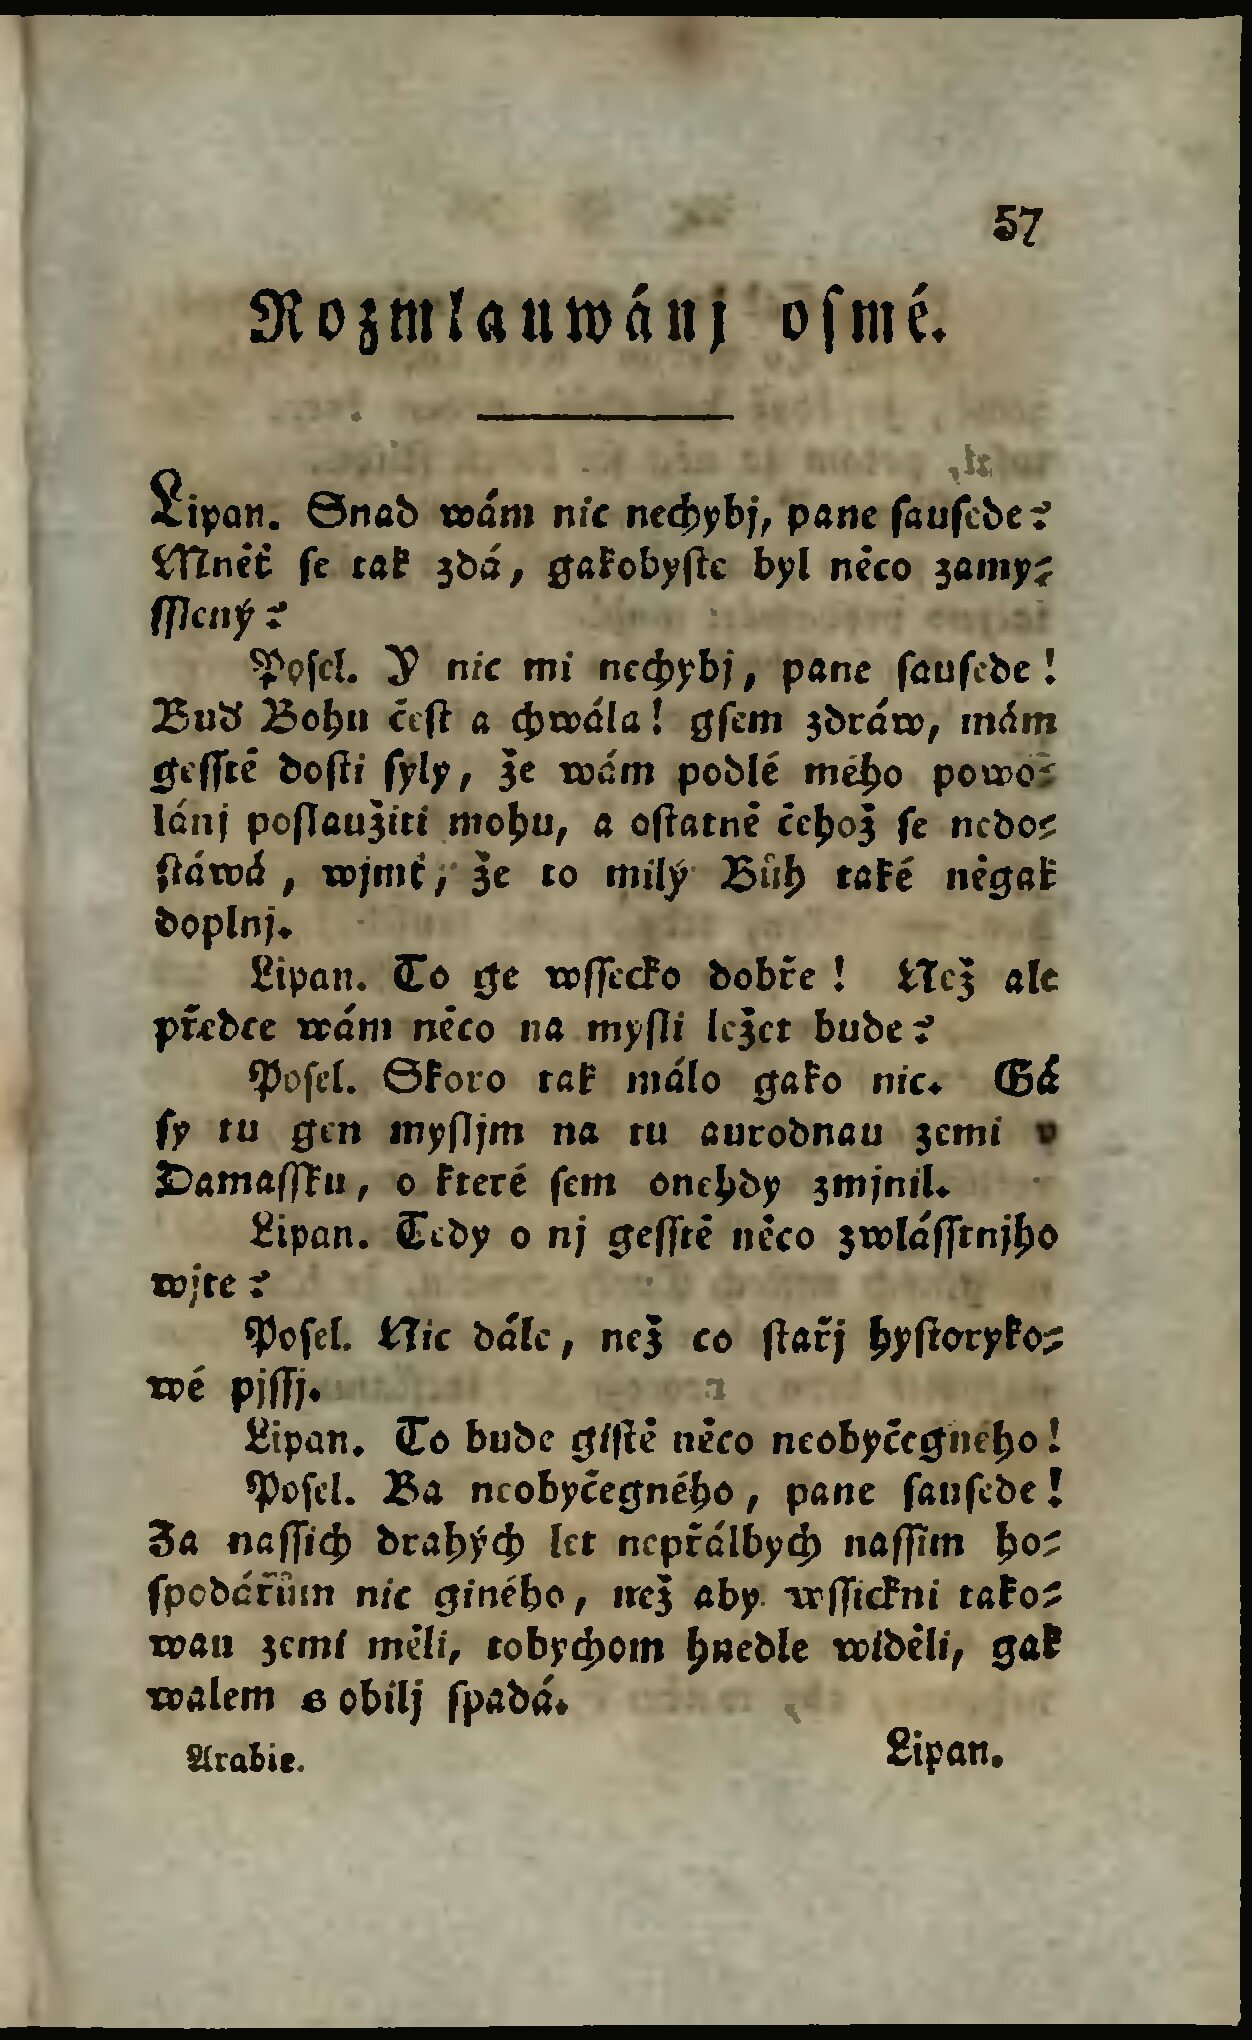 57
Rozmlauwánj osmé.
Lipan. Snad wám nic nechybj, pane sausede?
Mněť se tak zdá, gakobyste byl něco zamy-
sslený?
Posel. Y nic mi nechybj, pane sausede!
Buď Bohu čest a chwála! gsem zdráw, mám
gesstě dosti syly, že wám podlé mého powo-
lánj poslaužiti mohu, a ostatně čehož se nedo-
stáwá, wjmť, že to milý Bůh také něgak
doplnj.
Lipan. To ge wssecko dobře! Než ale
předce wám něco na mysli ležet bude?
Posel. Skoro tak málo gako nic. Gá
sy tu gen mysljm na tu aurodnau zemi v
Damassku, o které sem onehdy zmjnil.
Lipan. Tedy o nj gesstě něco zwlásstnjho
wjte?
Posel. Nic dále, než co stařj hystoryko-
wé pjssj.
Lipan. To bude gistě něco neobyčegného!
Posel. Ba neobyčegného, pane sausede!
Za nassich drahých let nepřálbych nassim ho-
spodářům nic giného, než aby wssickni tako-
wau zemi měli, tobychom hnedle widěli, gak
walem s obilj spadá.
Arabie. Lipan.